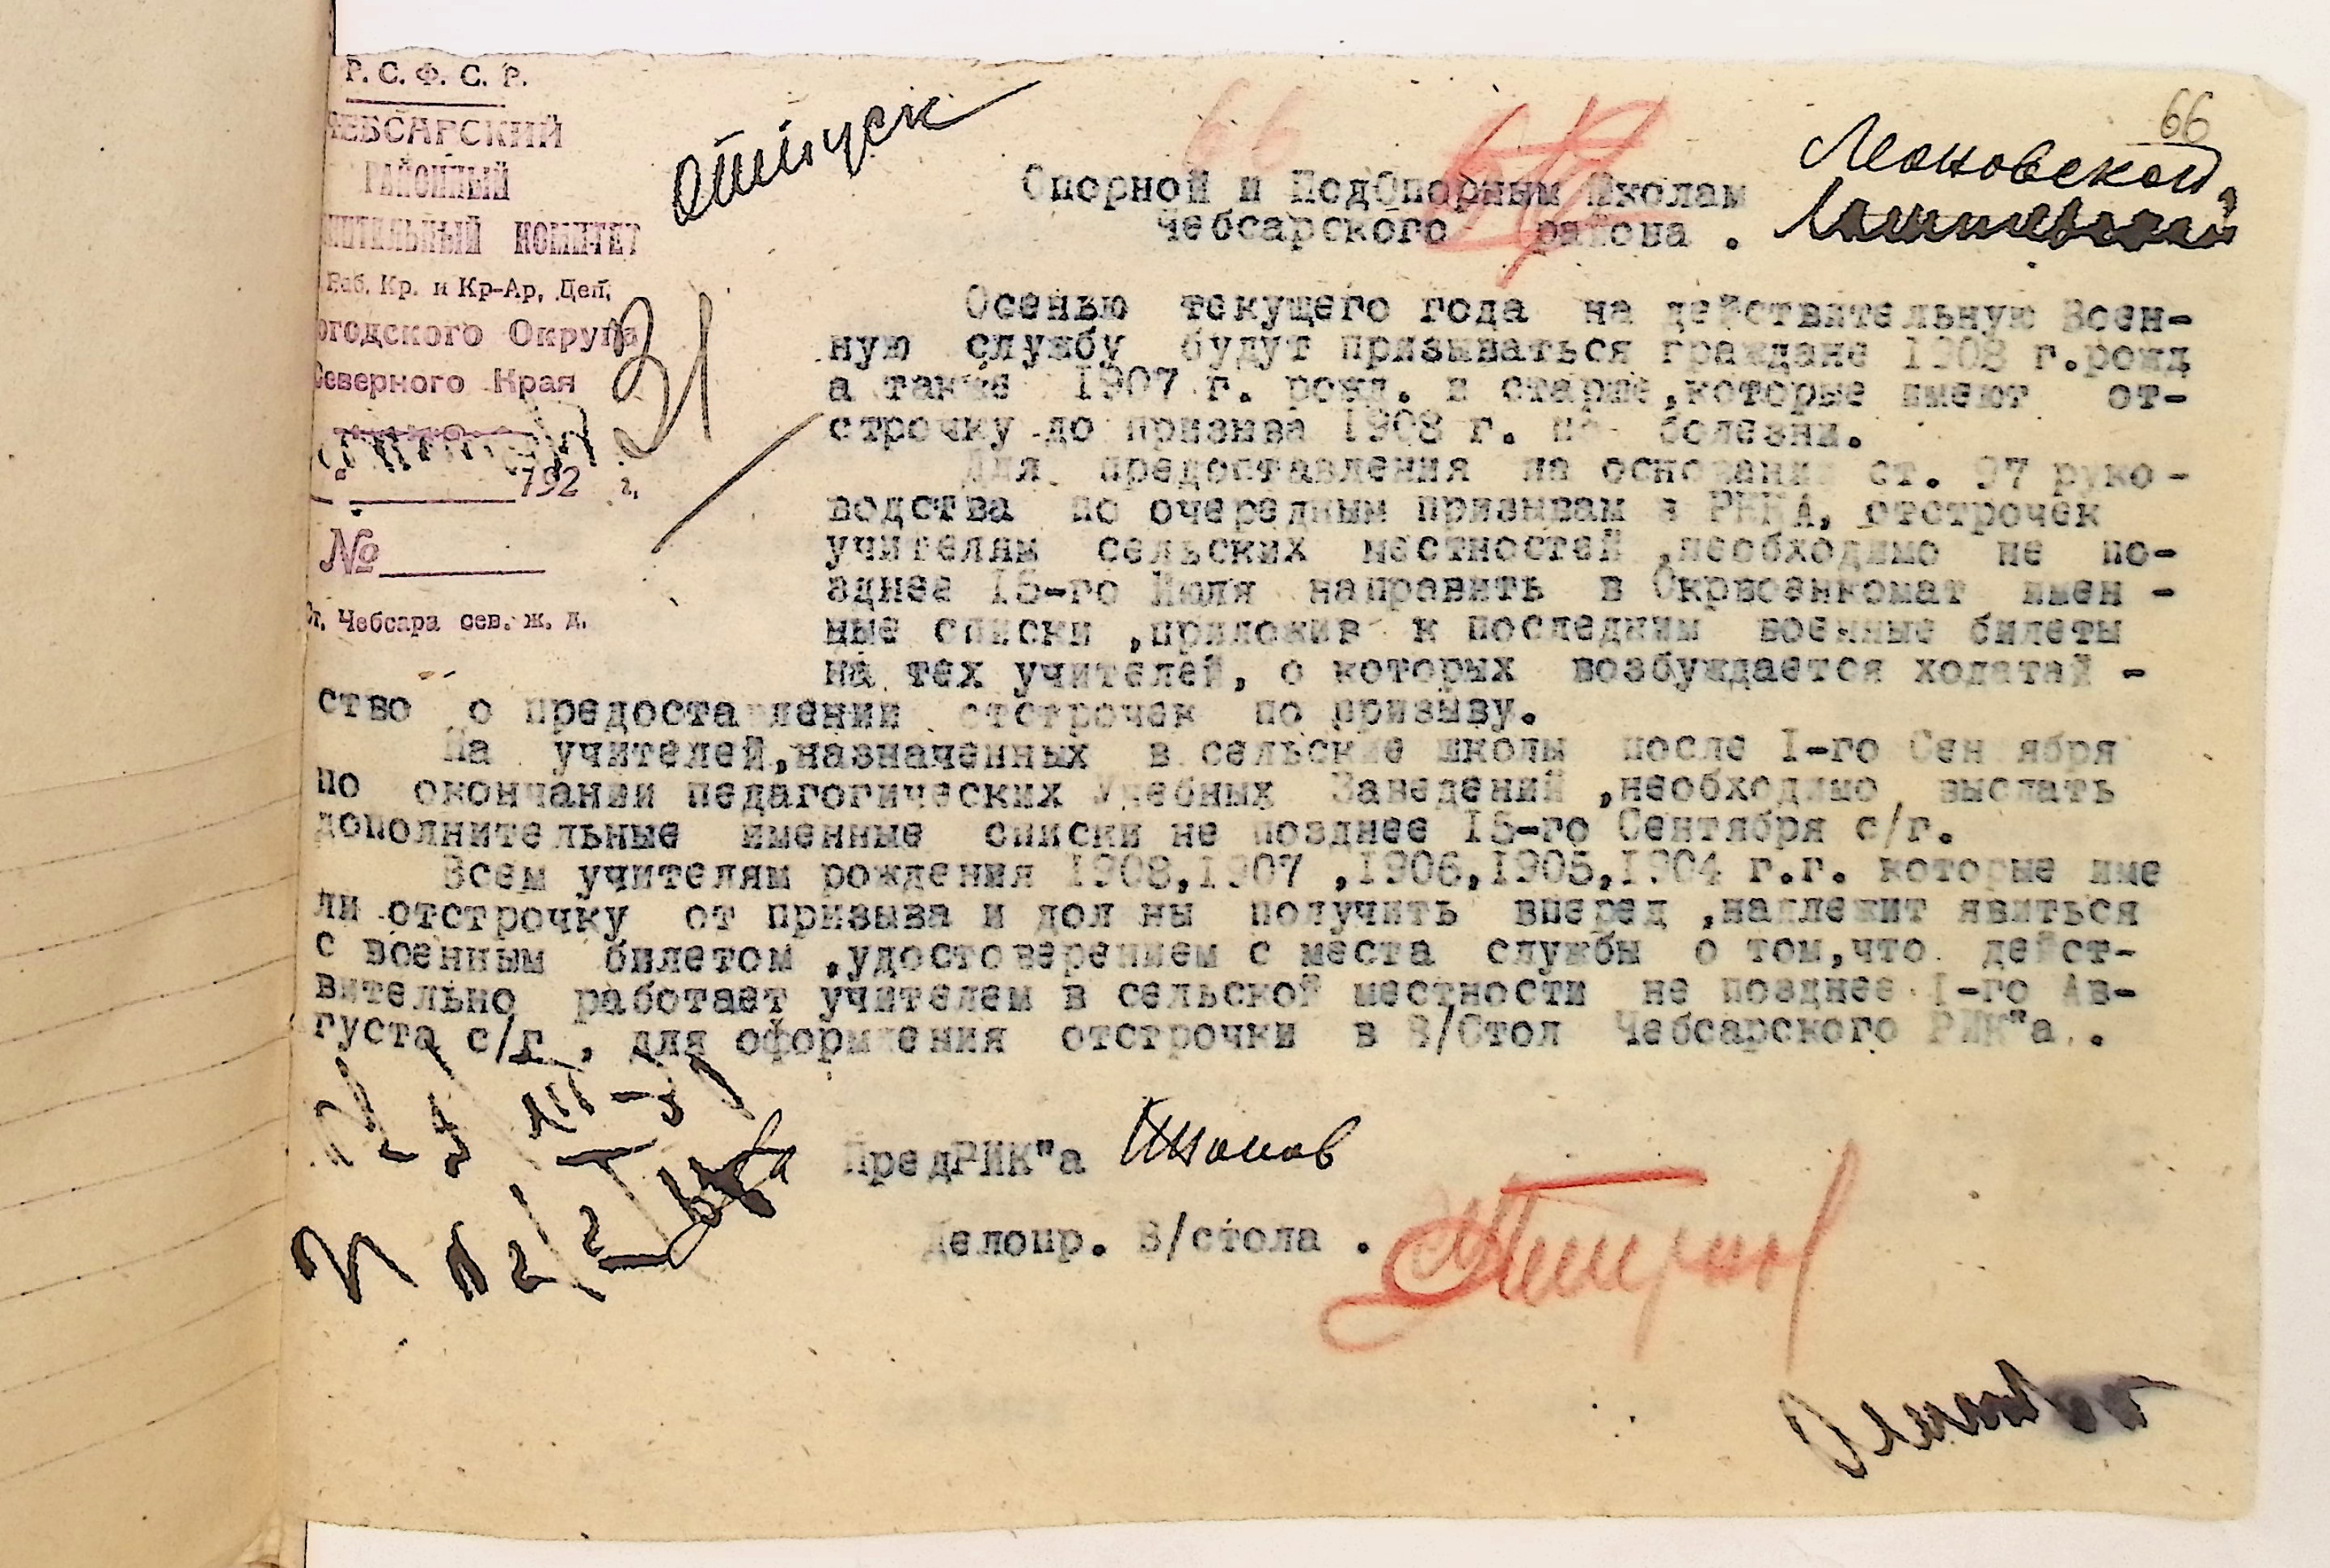 Р. С. Ф. С. Р.
ЧЕБСАРСКИЙ
РАЙОННЫЙ
НИТЕЛЬНЫЙ КОМИТЕТ
Раб. Кр. и Кр-Ар, Деп.
огодского Округа
Северного Края
192 г.
№
Ст. Чебсара сев. ж. д.
отпуск
31
66
66
Опорной и ПодОпорным Школам
Чебсарского района .
Осенью текущего года на действительную Воен-
ную службу будут призываться граждане 1908 г.рожд
а также 1907 г. рожд. и старше,которые имеют от-
строчку до призыва 1908 г. по болезни.
Для предоставления на основании ст. 97 руко-
водства по очередным призывам в РККА, отстрочек
учителям сельских местностей ,необходимо не по-
зднее 15-го Июля направить в Окрвоенкомат имен -
ные списки ,приложив к последним военные билеты
на тех учителей, о которых возбуждается ходатай -
ство о предоставлении отстрочек по призыву.
На учителей,назначенных в сельские школы после I-го Сентября
по окончании педагогических Учебных Заведений ,необходимо выслать
дополнительные именные списки не позднее 15-го Сентября с/г.
Всем учителям рождения 1908,1907 ,1906,1905,1904 г.г. которые име
ли отстрочку от призыва и должны получить вперед ,надлежит явиться
с военным билетом ,удостоверением с места службы о том,что дейст-
вительно работает учителем в сельской местности не позднее I-го Ав-
густа с/г. для оформления отстрочки в В/Стол Чебсарского РИК"а .
ПредРИК"а
Делопр. В/стола .